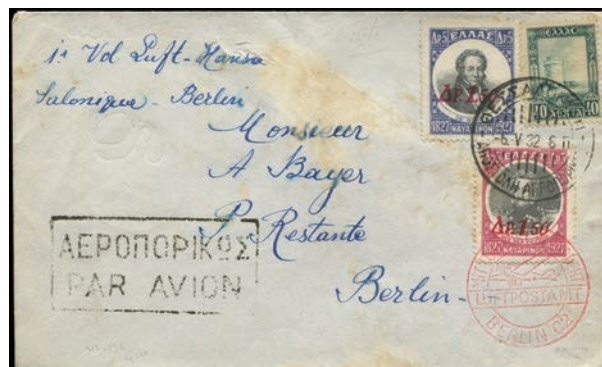 1e Vol Luft-Hansa
Salonique - Berlin
Monsieur
A Bayer
P. Restante
Berlin -
ΑΕΡΟΠΟΡΙΚΩΣ
PAR AVION
Δρ5 ΕΛΛΑΣ Δρ5
ΔΡ.
1827 ΝΑΥΑΡΙΝΟΝ 1927
ΕΛΛΑΣ
40 ΛΕΠΤΑ 40
6.V.32
ΔΡ.1.50
1827 ΝΑΥΑΡΙΝΟΝ 1927
LUFTPOSTAMT
BERLIN C2